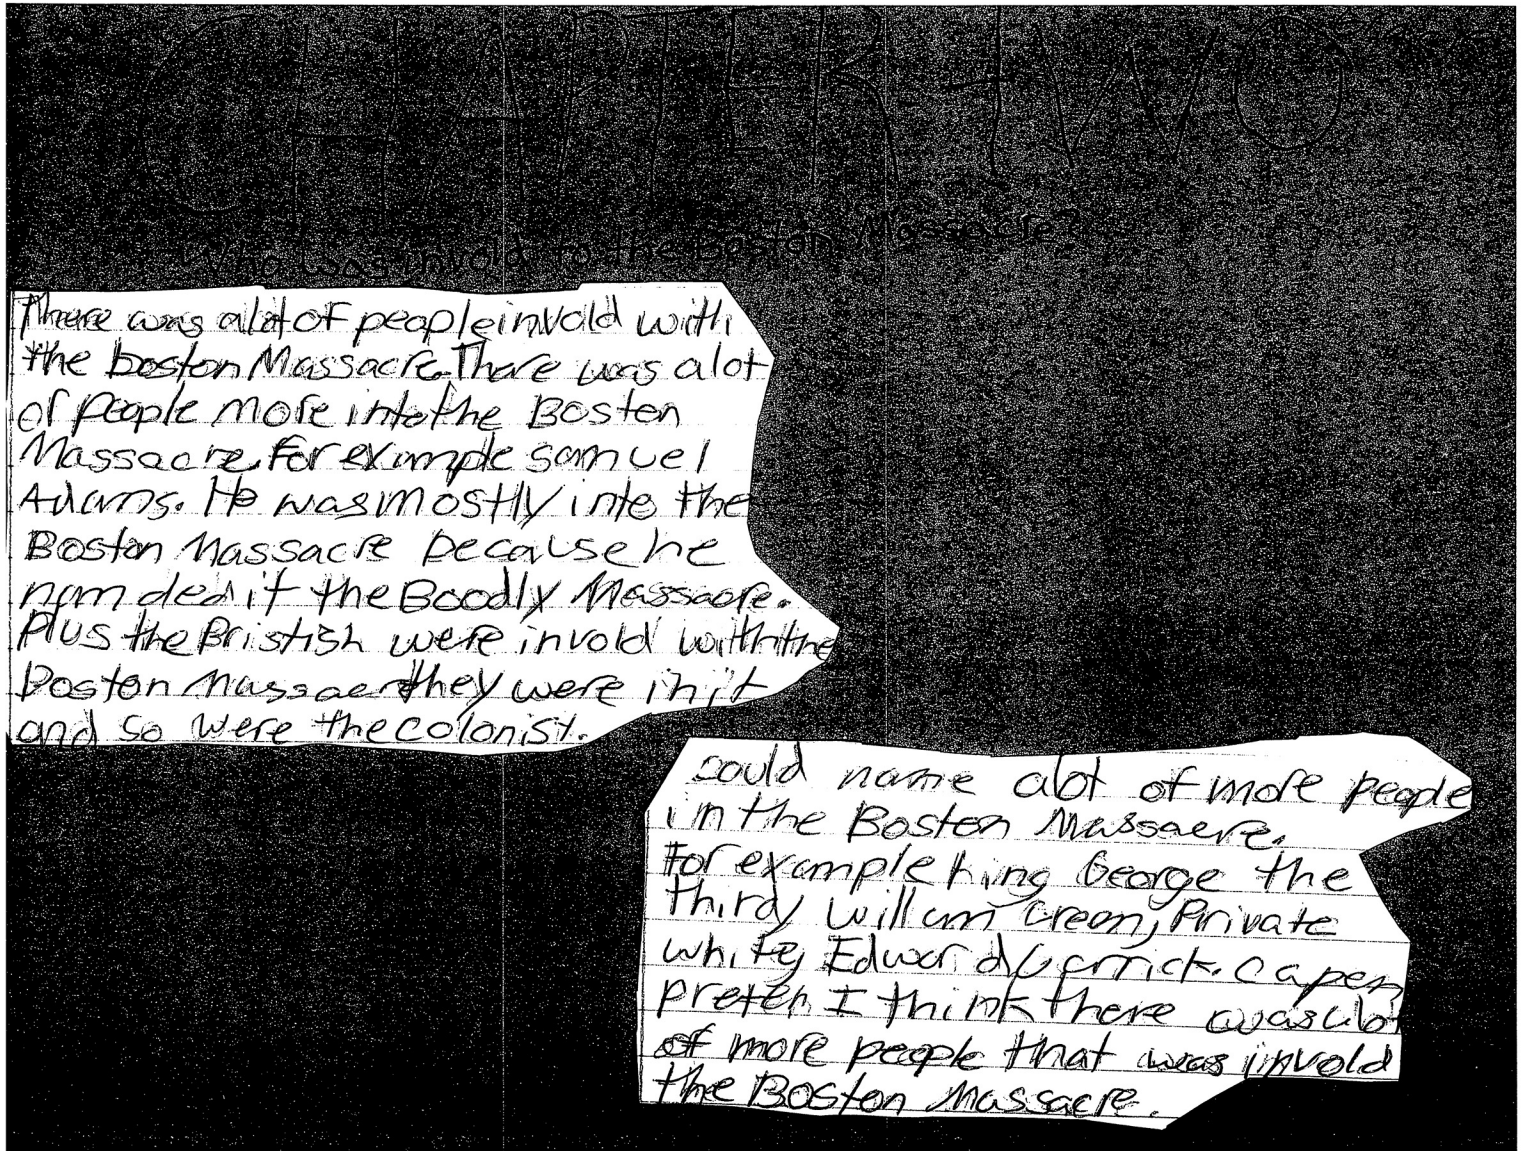 CHAPTER tWO
Who was invold to the Boston Massacre?
There was alot of people invold with
the boston Massacre. There was alot
of people more into the Boston
Massacre. For example samuel
Adams. He was mostly into the
Boston Massacre because he
namded it the Boodly Massacre.
Plus the Bristish were invold with the
Boston Massacre they were in it
and so were the colonist.
could name alot of more people
in the Boston Massacre.
For example king George the
thirdy Willam Green, Private
white, Edward Garrick. Capen
preten I think there was alot
of more people that was invold
the Boston Massacre.